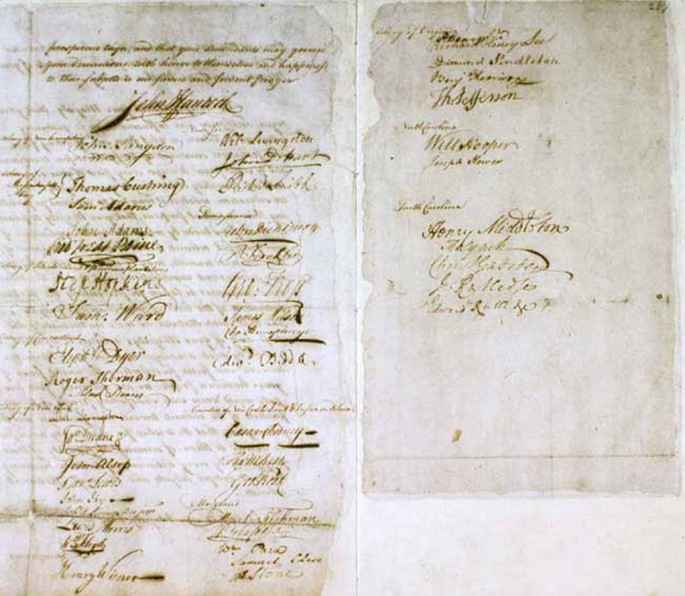 prosperous reign, and that your descendants may govern
your dominions with honor to themselves and happiness
to their subjects is our sincere and fervent prayer
John Hancock
John Langdon
Thomas Cushing
Sam Adams
John Adams
Rob Treat Paine
Step Hopkins
Sam: Ward
Elipht Dyer
Roger Sherman
Silas Deane
Jas Duane
John Alsop
John Jay
Lewis Morris
Wm Floyd
Henry Wisner
Wil: Livingston
John D Hart
Richd Smith
Pensylvania
John Dickinson
B Franklin
Geo: Ross
James Wilson
Cha Humphreys
Edwd Biddle
Caesar Rodney
Thos M:Kean
Geo Read
Maryland
Mat Tilghman
Wm Paca
Samuel Chase
Thos Stone
P. Henry Jr
Richard Henry Lee
Edmund Pendleton
Benj Harrison
Th Jefferson
North Carolina
Will Hooper
Joseph Hewes
South Carolina
Henry Middleton
Tho Lynch
Christ Gadsden
J. Rutledge
Edward Rutledge